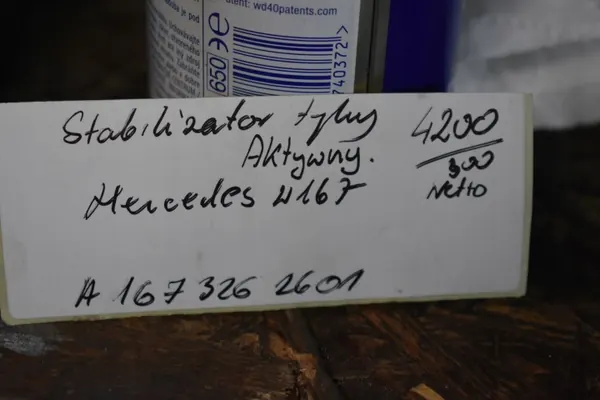 tent: wd40patents.com
650
740372>
Stabilizator tylny
Aktywny.
4200
300
Netto
Mercedes W167
A 167 326 2601